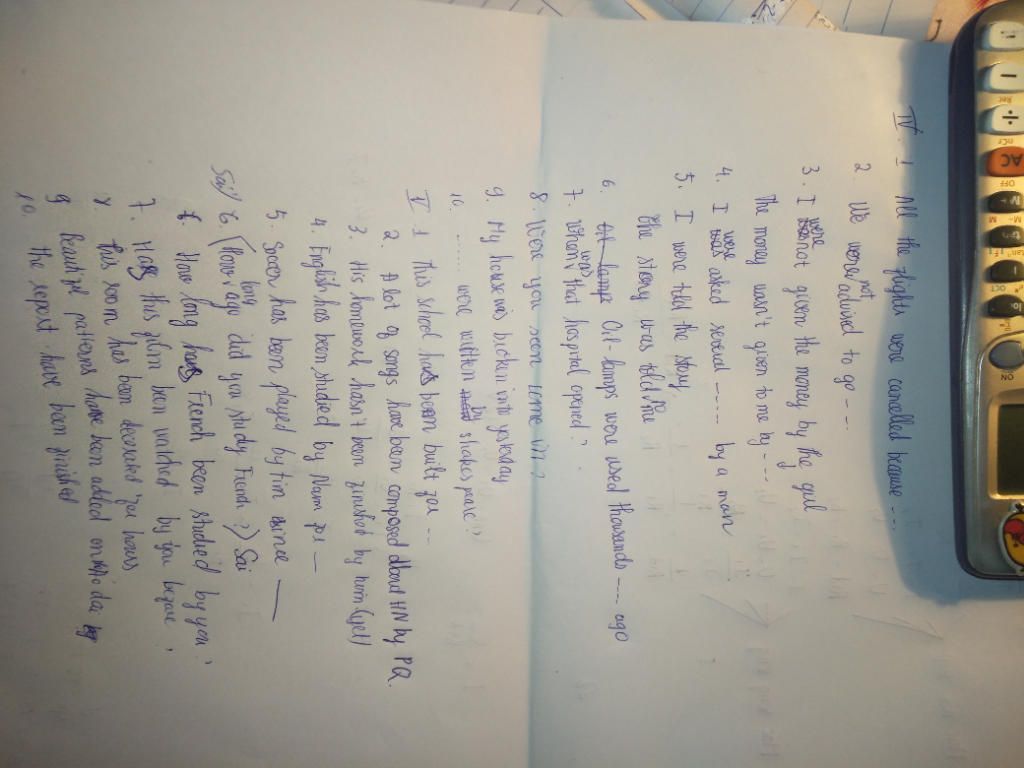 IV. 1 All the flights were cancelled because ----
2. We were not advised to go ----
3. I were not given the money by the girl
The money wasn't given to me by ----
4. I were asked several ----- by a man
5. I were told the story.
The story was told
6. Oil-lamps were used thousands ---- ago
7. When was that hospital opened?
8. Were you seen come in?
9. My house was broken into yesterday
10. ...... were written by Shakespeare?
V 1 This school has been built for ---
2. A lot of songs have been composed about HN by PQ.
3. His homework hasn't been finished by him (yet)
4. English has been studied by Nam for —
5. Soccer has been played by Tim since —
Sai) 6. (How long ago did you study French ?) Sai
6. How long has French been studied by you ?
7. Has this film been watched by you before ?
8. this room has been decorated for hours
9 Beautiful patterns have been added on áo dài
10. the report have been finished
AC
OFF
ON